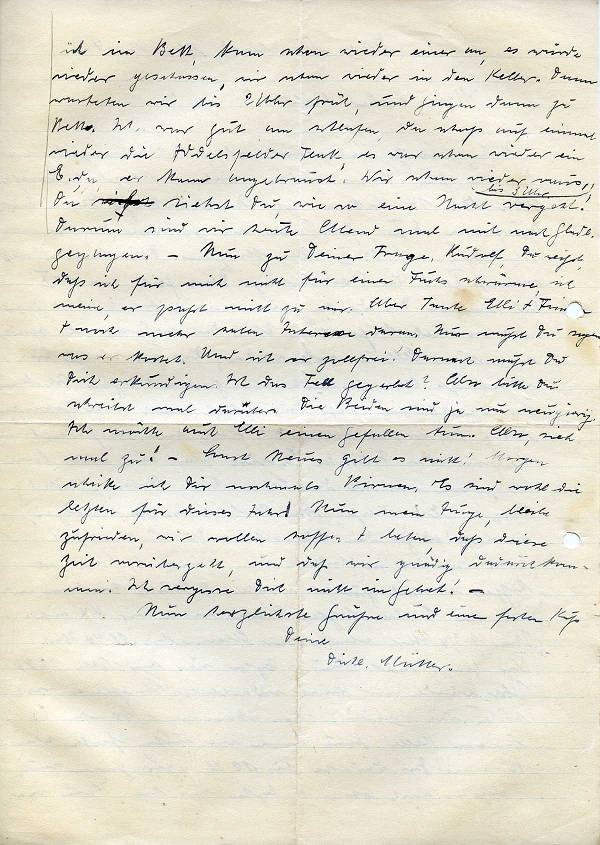 ich im Bett, kam schon wieder einer an, es wurde
wieder geschossen, wir schon wieder in den Keller. Dann
warteten wir bis 2 Uhr früh, und gingen dann zu
Bett. Ich war gut am schlafen, da schoß auf einmal
wieder die Iddelsfelder Funk, es war schon wieder ein
da, er kam angebraust. Wir schon wieder raus!
bis 3 Uhr
Du siehst Du, wie so eine Nacht vergeht!
Darum sind wir heute Abend mal mit nach Gladb.
gegangen. – Nun zu Deiner Frage, Rudolf, Du weißt,
daß ich für mich nicht für einen Fuchs schwärme, ich
meine, er paßt nicht zu mir. Aber Tante Elli +
+ noch mehr haben Interesse daran. Nun mußt Du sagen
was er kostet. Und ist er zollfrei! Darnach mußt Du
Dich erkundigen. Ist das Fell gegerbt? Also bitte Du
schreibst mal darüber. Die Beiden sind ja nun neugierig.
Ich möchte auch Elli einen Gefallen tun. Also, sieh
mal zu! – Sonst Neues gibt es nicht! Morgen
schicke ich Dir nochmals Birnen. Es sind wohl die
letzten für dieses Jahr! Nun mein Junge, bleibe
zufrieden, wir wollen hoffen + beten, daß diese
Zeit vorübergeht, und daß wir gnädig davon kom-
men! Ich vergesse Dich nicht im Gebet! –
Nun herzlichste Grüße und einen festen Kuß
Deine
Dichl. Mutter.